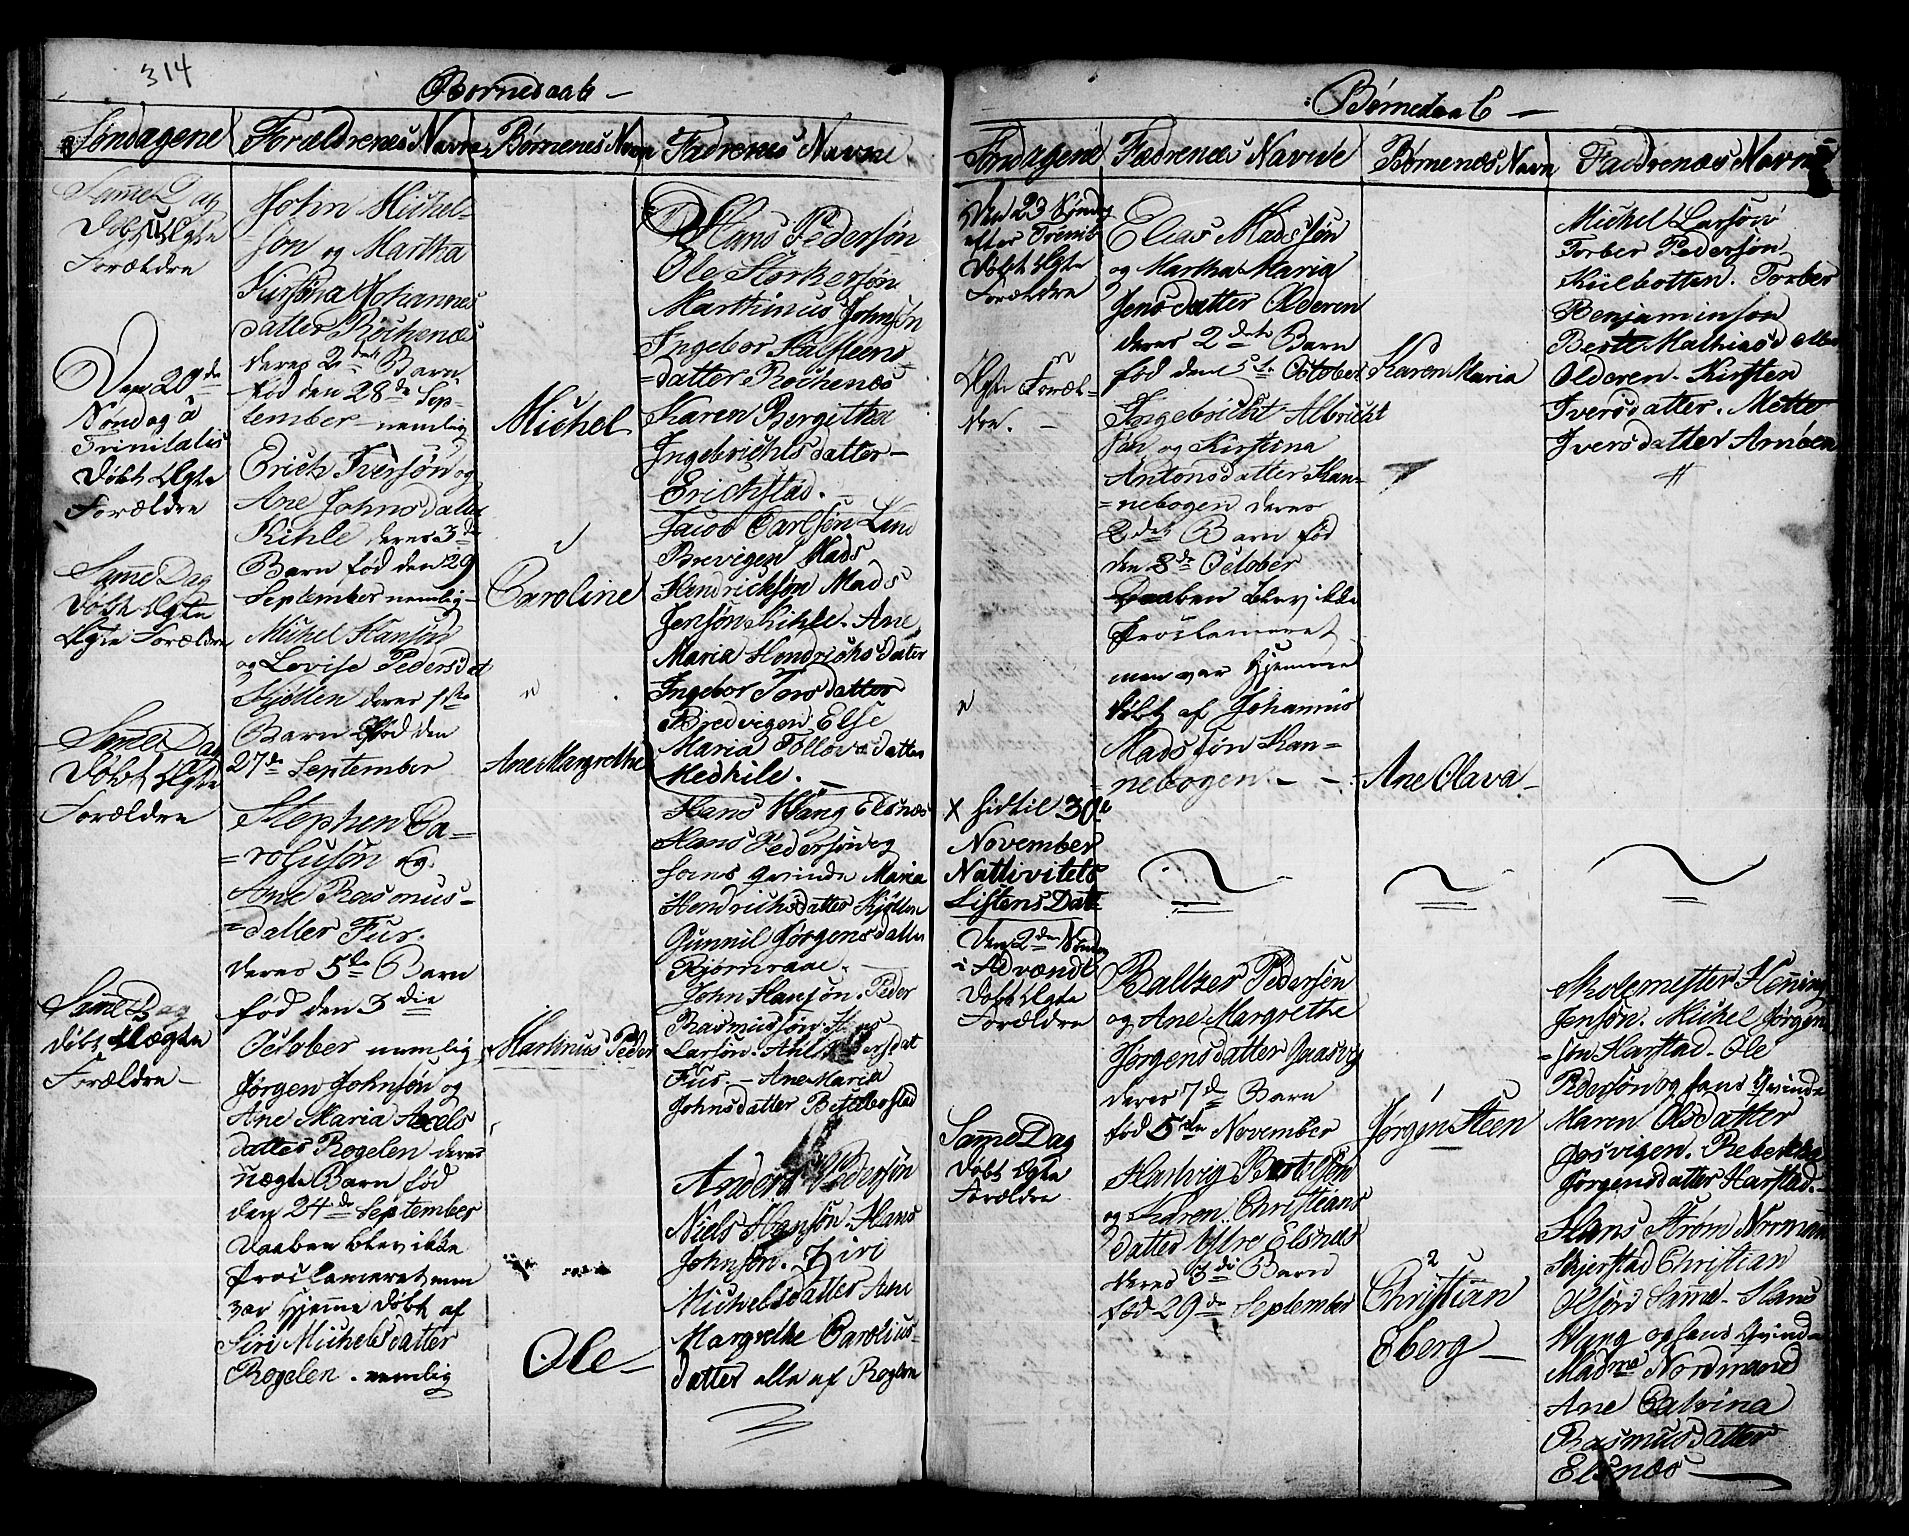 314
Børnedaab -
Søndagene
Forældrenes Navne
Børnenes Navn
Fadrenes Navne
Samme Dag
Døbt Ægte
Forældre
John Michel-
søn og Martha
Johannes
datter Rochenæs
deres 2det Barn
fød den 28de Sep-
tember nemlig
Michel
Hans Pedersøn
Ole Storkersøn
Marthinus Johnsøn
Ingebor Halsteens-
=datter Rochenæs
Karen Bergitha
Ingebrichtsdatter -
Erichstad. -
Den 20de
Søndag a
Trinitatis
Døbt Ægte
Forældre
Erich Iversøn og
Ane Johnsdatter
Kihle deres 3de
Barn fød den 29
September nemlig -
Caroline
Jacob Carlsøn Lind
Brevigen Mads
Hendricksøn Mads
Jensøn Kihle. Ane
Maria Hendrichsdatter
Ingebor Torsdatter
Bredvigen Else
Maria Tollovsdatter
Medkile. -
Samme Dag
Døbt Ægte
Ægte Forældre
Michel Hansøn
og Lovise Pedersdat
Kjøtten deres 1ste
Barn fød den
27de September
Ane Margrethe
Hans Wang Elsnæs
Hans Pedersøn og
hans Qvinde Maria
Hendrichsdatter Kjøtten
Gunnil Jørgensdatter
Bjørnraae. -
Samme Dag
Døbt Ægte
Forældre
Stephen Ca=
=rolusøn og
Ane Rasmus=
=datter Fur.
deres 5de Barn
fød den 3die
October nemlig
Martinus Peder
John Hansøn. Peder
Rasmussøn.
Larsøn.
Fur. - Ane Maria
Johnsdatter
Samme Dag
døbt Uægte
Forældre -
Jørgen Johnsøn og
Ane Maria Axels
datter Rogelen deres
uægte Barn fød
den 24de September
Daaben blev ikke
Proclameret men
var Hjemme døbt af
Siri Michelsdatter
Rogelen. nemlig
Ole -
Anders Pedersøn
Niels Hansøn. Hans
Johnsøn. Ziri
Michelsdatter Ane
Margrethe Carolius-
datter alle af Roglen
Børnedaab -
Søndagene
Fædrenes Navne
Børnenes Navn
Faddrenæs Navne
Den 23 Søndag
efter Trenit
Døbt Ægte
Forældre
Elias Madssøn
og Martha Maria
Jensdatter Olderen
deres 2det Barn
fød den 5te October
Karen Maria
Michel Larsøn
Torber Pedersøn
Kiilbotten. Torber
Benjaminsøn
Berte Mathiasdatter
Olderen. Kirsten
Iversdatter. Mette
Iversdatter Arnøen
Ægte Foræl-
dre. -
Ingebricht Albricht
søn og Kirstina
Antonsdatter Kan-
=nebogen deres
2det Barn fød
den 8de October
Daaben blev ikke
Proclameret
men var Hjemme
døbt af Johannis
Madssøn Kan=
nebogen. - -
Ane Olava. -
X hidtil 30te
November
Nattivitets
Listens Datt
Den 2den Sønda
i Advændt
Døbt Ægte
Forældre
Baltzer Pedersøn
og Ane Margrethe
Jørgensdatter Gaasvig
deres 7de Barn
fød 5te November
1
Jørgen Steen
Skolemester Henning
Jensøn. Michel Jørgen
=søn Harstad. Ole
Pedersøn og hans Qvinde
Maren Olsdatter
Gosvigen. Rebekka
Jørgensdatter Harstad. -
Samme Dag
Døbt Ægte
Forældre
Hartvig Bertelsøn
og Karen Christians
datter Ystre Elsnæs
deres 3die Barn
fød 29de September
2
Christian
Eberg -
Hans Strøm Normann
Skjerstad Christian
Olsøn Samme. Hans
Wang og hans Qvinde
Madme Nordmand
Ane Catrina
Rasmusdatter
Elsnæs -